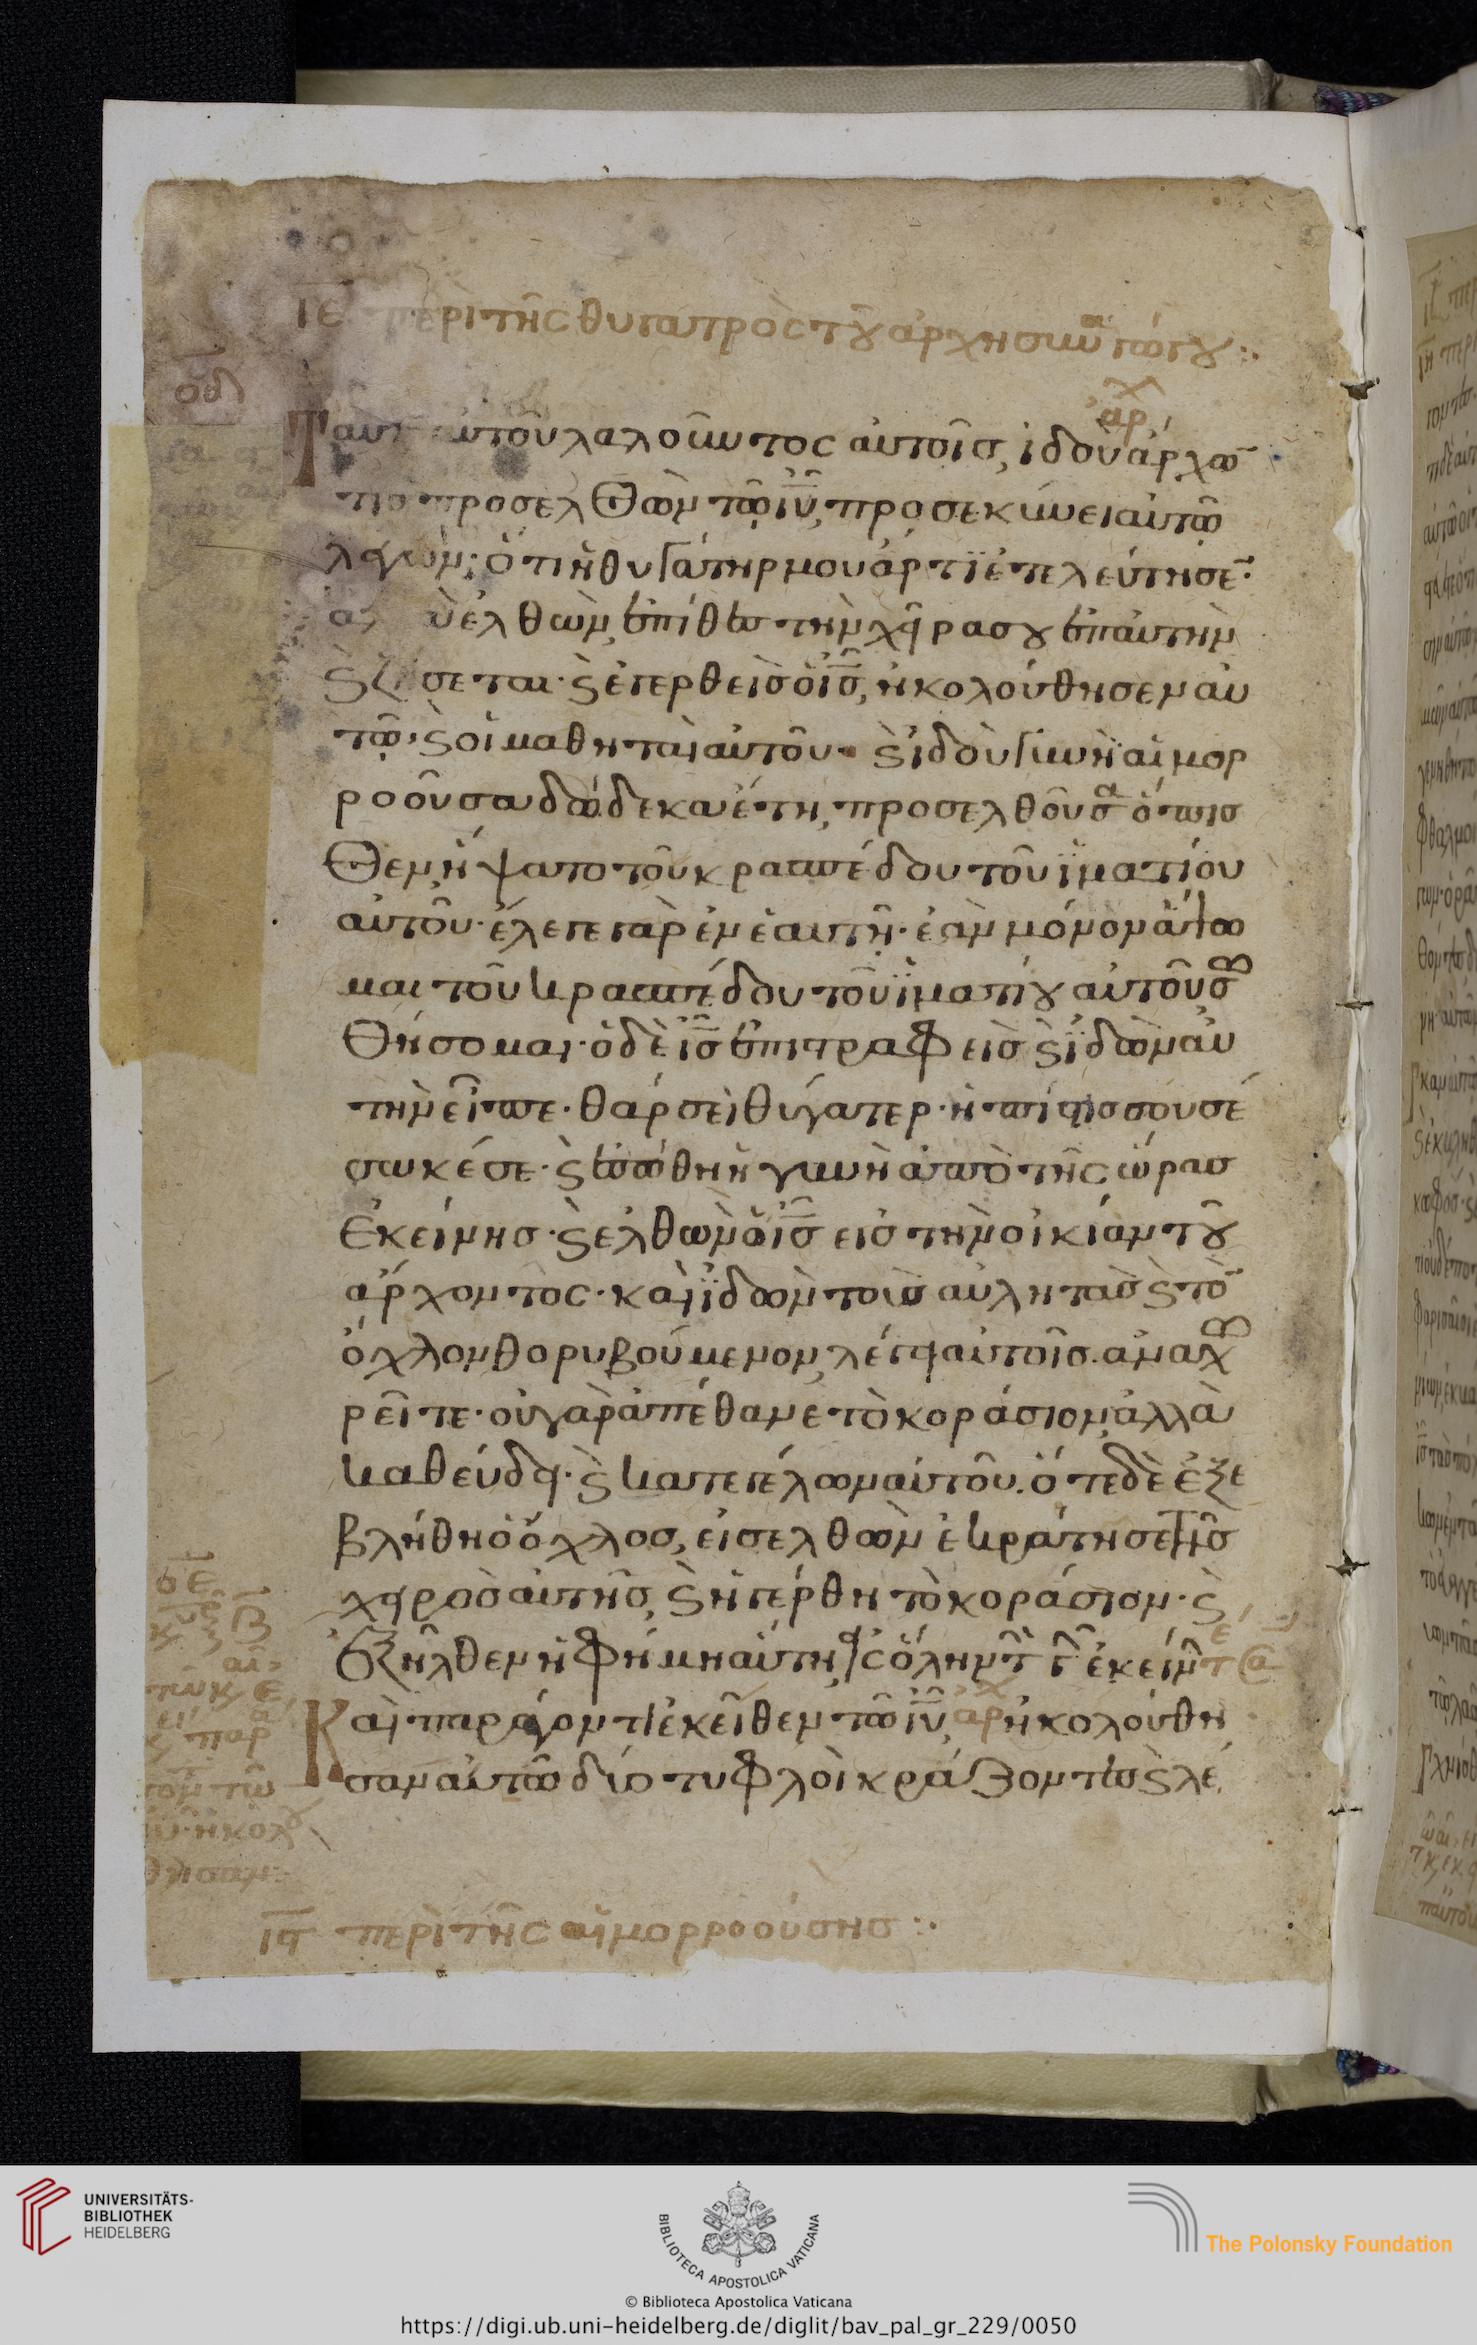 ιε περὶ τῆς θυγατρὸς τοῦ ἀρχησυναγώγου:.
οδ
ἀρχ
Ταῦτ αὐτοῦ λαλοῦντος αὐτοῖς, ἰδοὺ ἄρχω̅
τις προσελθὼν τῷ ιυ̅, προσεκύνει αὐτῷ
λέγων; ὅτι ἡ θυγάτηρ μου ἄρτι ἐτελεύτησε̅·
ἐλθὼν ἐπίθες τὴν χεῖρα σου ἐπ αὐτὴν
ϗ ζήσεται· ϗ ἐγερθεὶς ὁ ις̅, ἠκολούθησεν αὐ
τῷ, ϗ οἱ μαθηταὶ αὐτοῦ· ϗ ἰδοὺ γυνὴ αἱμορ
ροοῦσα δώδεκα ἔτη, προσελθοῦσα ὄπισ
θεν ἥψατο τοῦ κρασπέδου τοῦ ἱματίου
αὐτοῦ· ἔλεγε γὰρ ἐν ἑαυτῇ· ἐὰν μόνον ἅψω
μαι τοῦ κρασπέδου τοῦ ἱματίου αὐτοῦ σω
θήσομαι· ὁ δὲ ις̅ ἐπιστραφεὶς ϗ ἰδὼν αὐ
τὴν εἶπε· θάρσει θύγατερ· ἡ πίστις σου σέ
σωκέ σε· ϗ ἐσώθη ἡ γυνὴ ἀπὸ τῆς ὥρας
ἐκείνης· ϗ ἐλθὼν ὁ ις̅ εἰς τὴν οἰκίαν τοῦ
ἄρχοντος· καὶ ἰδὼν τοὺς αὐλητὰς ϗ τὸ̅
ὄχλον θορυβούμενον, λέγει αὐτοῖς· ἀναχω
ρεῖτε· οὐ γὰρ ἀπέθανε τὸ κοράσιον, ἀλλὰ
καθεύδει· ϗ κατεγέλων αὐτοῦ. ὅτε δὲ ἐξε
βλήθη ὁ ὄχλος, εἰσελθὼν ἐκράτησε τῆς
χειρὸς αὐτῆς, ϗ ἠγέρθη τὸ κοράσιον· ϗ
ἐξῆλθεν ἡ φήμη αὕτη εἰς ὅλην τ γ ἐκείν
Καὶ παράγοντι ἐκεῖθεν τῷ ιυ̅, ἀρχ ἠκολούθη
σαν αὐτῷ δύο τυφλοὶ κράζοντες ϗ λέ
οε
ις περὶ τῆς αἱμορροούσης:.
UNIVERSITÄTS-
BIBLIOTHEK
HEIDELBERG
BIBLIOTECA APOSTOLICA VATICANA
The Polonsky Foundation
© Biblioteca Apostolica Vaticana
https://digi.ub.uni-heidelberg.de/diglit/bav_pal_gr_229/0050